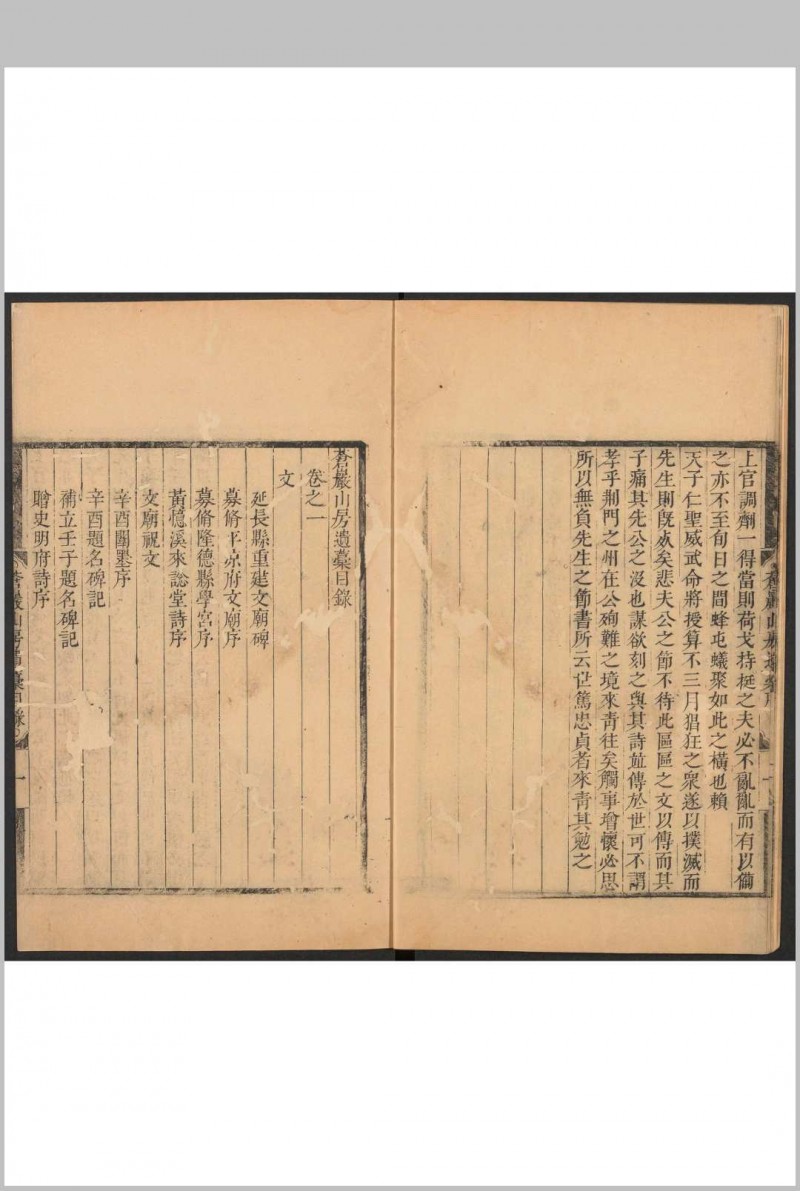 上官調劑一得當則荷戈持梃之夫必不亂亂而有以備
之亦不至旬日之間蜂屯蟻聚如此之橫也賴
天子仁聖威武命將授算不三月猖狂之衆遂以撲滅而
先生則旣矣悲夫公之節不待此區區之文以傳而其
子痛其先公之沒也謀欲刻之與其詩並傳於世可不謂
孝乎荆門之州在公殉難之境來青往矣觸事增懷必思
所以無負先生之節書所云世篤忠貞者來青其勉之
蒼巖山房遺藁目錄
卷之一
文
延長縣重建文廟碑
募脩平凉府文廟序
募脩隆德縣學宮序
黃憶溪來諗堂詩序
文廟祝文
辛酉闈墨序
辛酉題名碑記
補立壬子題名碑記
贈史明府詩序